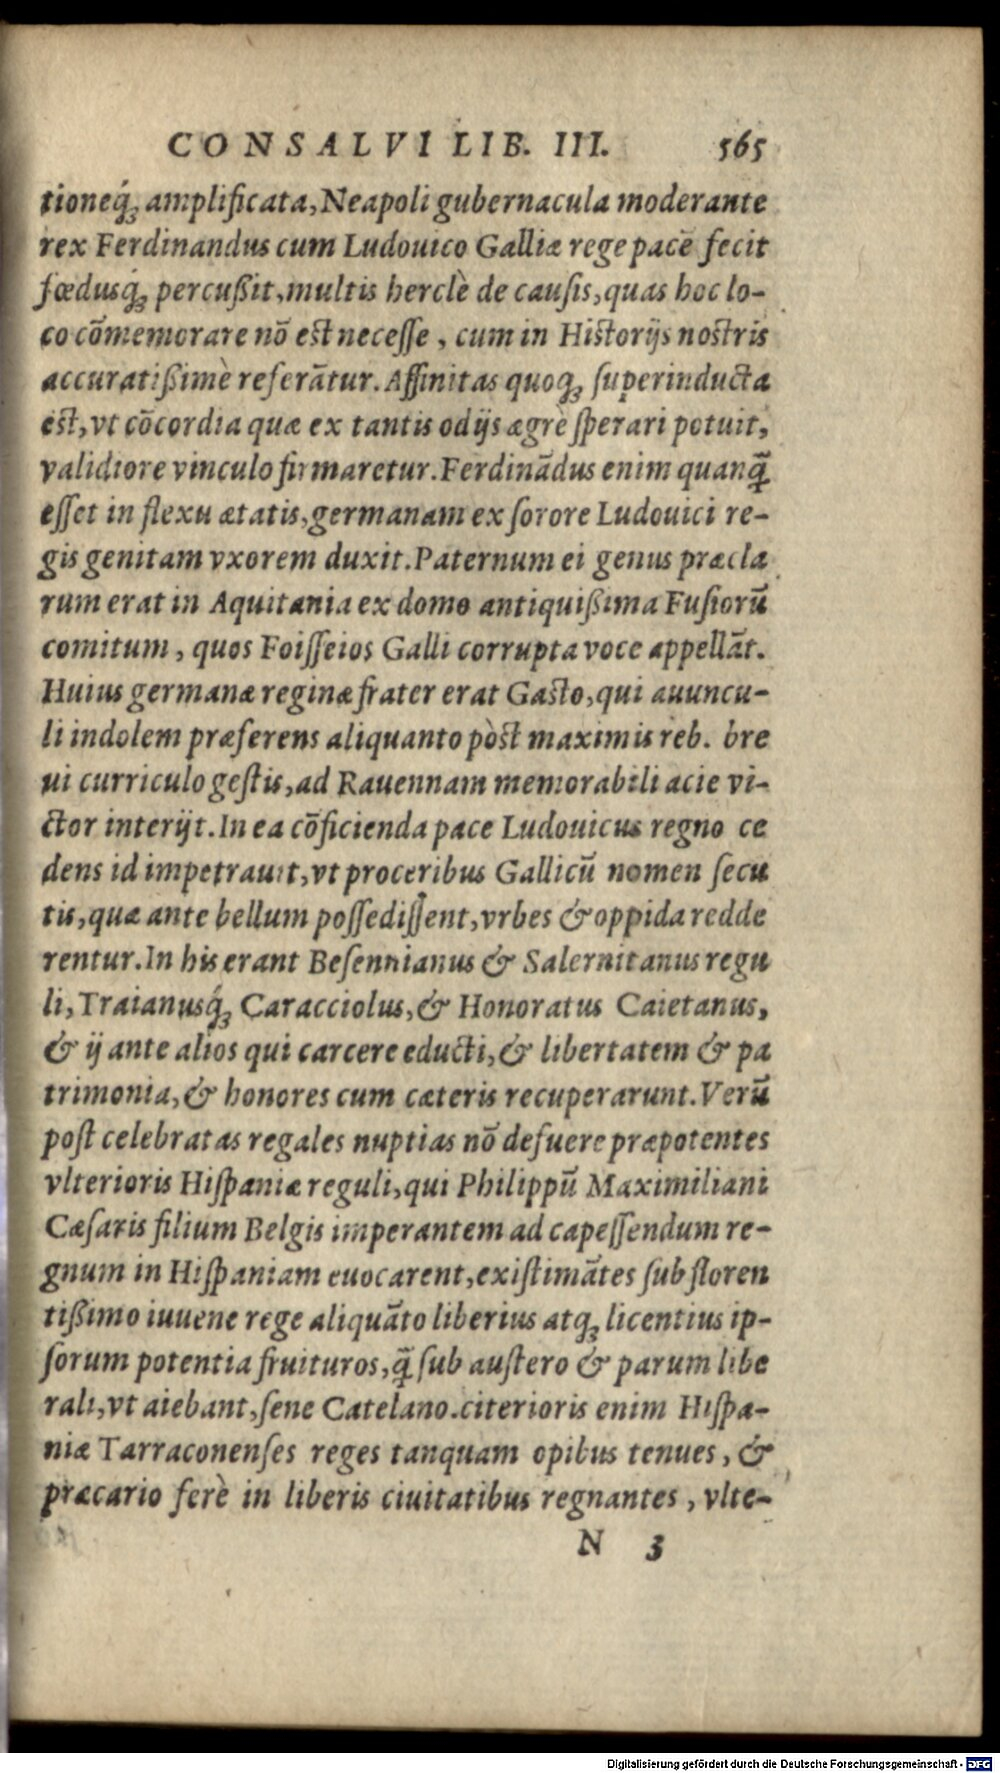 CONSALVI LIB. III. 565
tioneq́ꝫ amplificata, Neapoli gubernacula moderante
rex Ferdinandus cum Ludouico Galliæ rege pacē fecit
fœdusq́ꝫ percußit, multis herclè de causis, quas hoc lo-
co cōmemorare nō est necesse, cum in Historijs nostris
accuratißimè referātur. Affinitas quoqꝫ superinducta
est, vt cōcordia quæ ex tantis odijs ægrè sperari potuit,
validiore vinculo firmaretur. Ferdināndus enim quanq̄
esset in flexu ætatis, germanam ex sorore Ludouici re-
gis genitam vxorem duxit. Paternum ei genus præcla
rum erat in Aquitania ex domo antiquißima Fusiorū
comitum, quos Foisseios Galli corrupta voce appellāt.
Huius germanæ reginæ frater erat Gasto, qui auuncu-
li indolem præferens aliquanto pòst maximis reb. bre
ui curriculo gestis, ad Rauennam memorabili acie vi-
ctor interijt. In ea cōficienda pace Ludouicus regno ce
dens id impetrauit, vt proceribus Gallicū nomen secu
tis, quæ ante bellum possedissent, vrbes & oppida redde
rentur. In his erant Besennianus & Salernitanus regu
li, Traianusq́ꝫ Caracciolus, & Honoratus Caietanus,
& ij ante alios qui carcere educti, & libertatem & pa
trimonia, & honores cum cæteris recuperarunt. Verū
post celebratas regales nuptias nō defuere præpotentes
vlterioris Hispaniæ reguli, qui Philippū Maximiliani
Cæsaris filium Belgis imperantem ad capessendum re-
gnum in Hispaniam euocarent, existimātes sub floren
tißimo iuuene rege aliquāto liberius atqꝫ licentius ip-
sorum potentia fruituros, q̄ sub austero & parum libe
rali, vt aiebant, sene Catelano. citerioris enim Hispa-
niæ Tarraconenses reges tanquam opibus tenues, &
præcario ferè in liberis ciuitatibus regnantes, vlte-
N 3
Digitalisierung gefördert durch die Deutsche Forschungsgemeinschaft - DFG